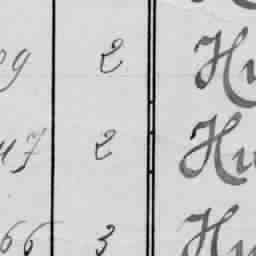 09 2 Hu
47 2 Hu
66 3 Hu